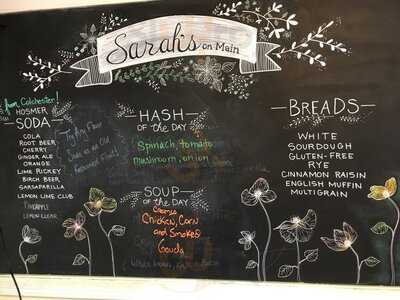 Sarah's on Main
from Colchester!
HOSMER
SODA
COLA
ROOT BEER
CHERRY
GINGER ALE
ORANGE
LIME RICKEY
BIRCH BEER
SARSAPARILLA
LEMON LIME CLUB
PINEAPPLE
LEMON CLEAR
HASH
OF THE DAY
Spinach tomato
mushroom, onion
SOUP
OF THE DAY
Chicken, Corn
and Smoked
Gouda
BREADS
WHITE
SOURDOUGH
GLUTEN-FREE
RYE
CINNAMON RAISIN
ENGLISH MUFFIN
MULTIGRAIN